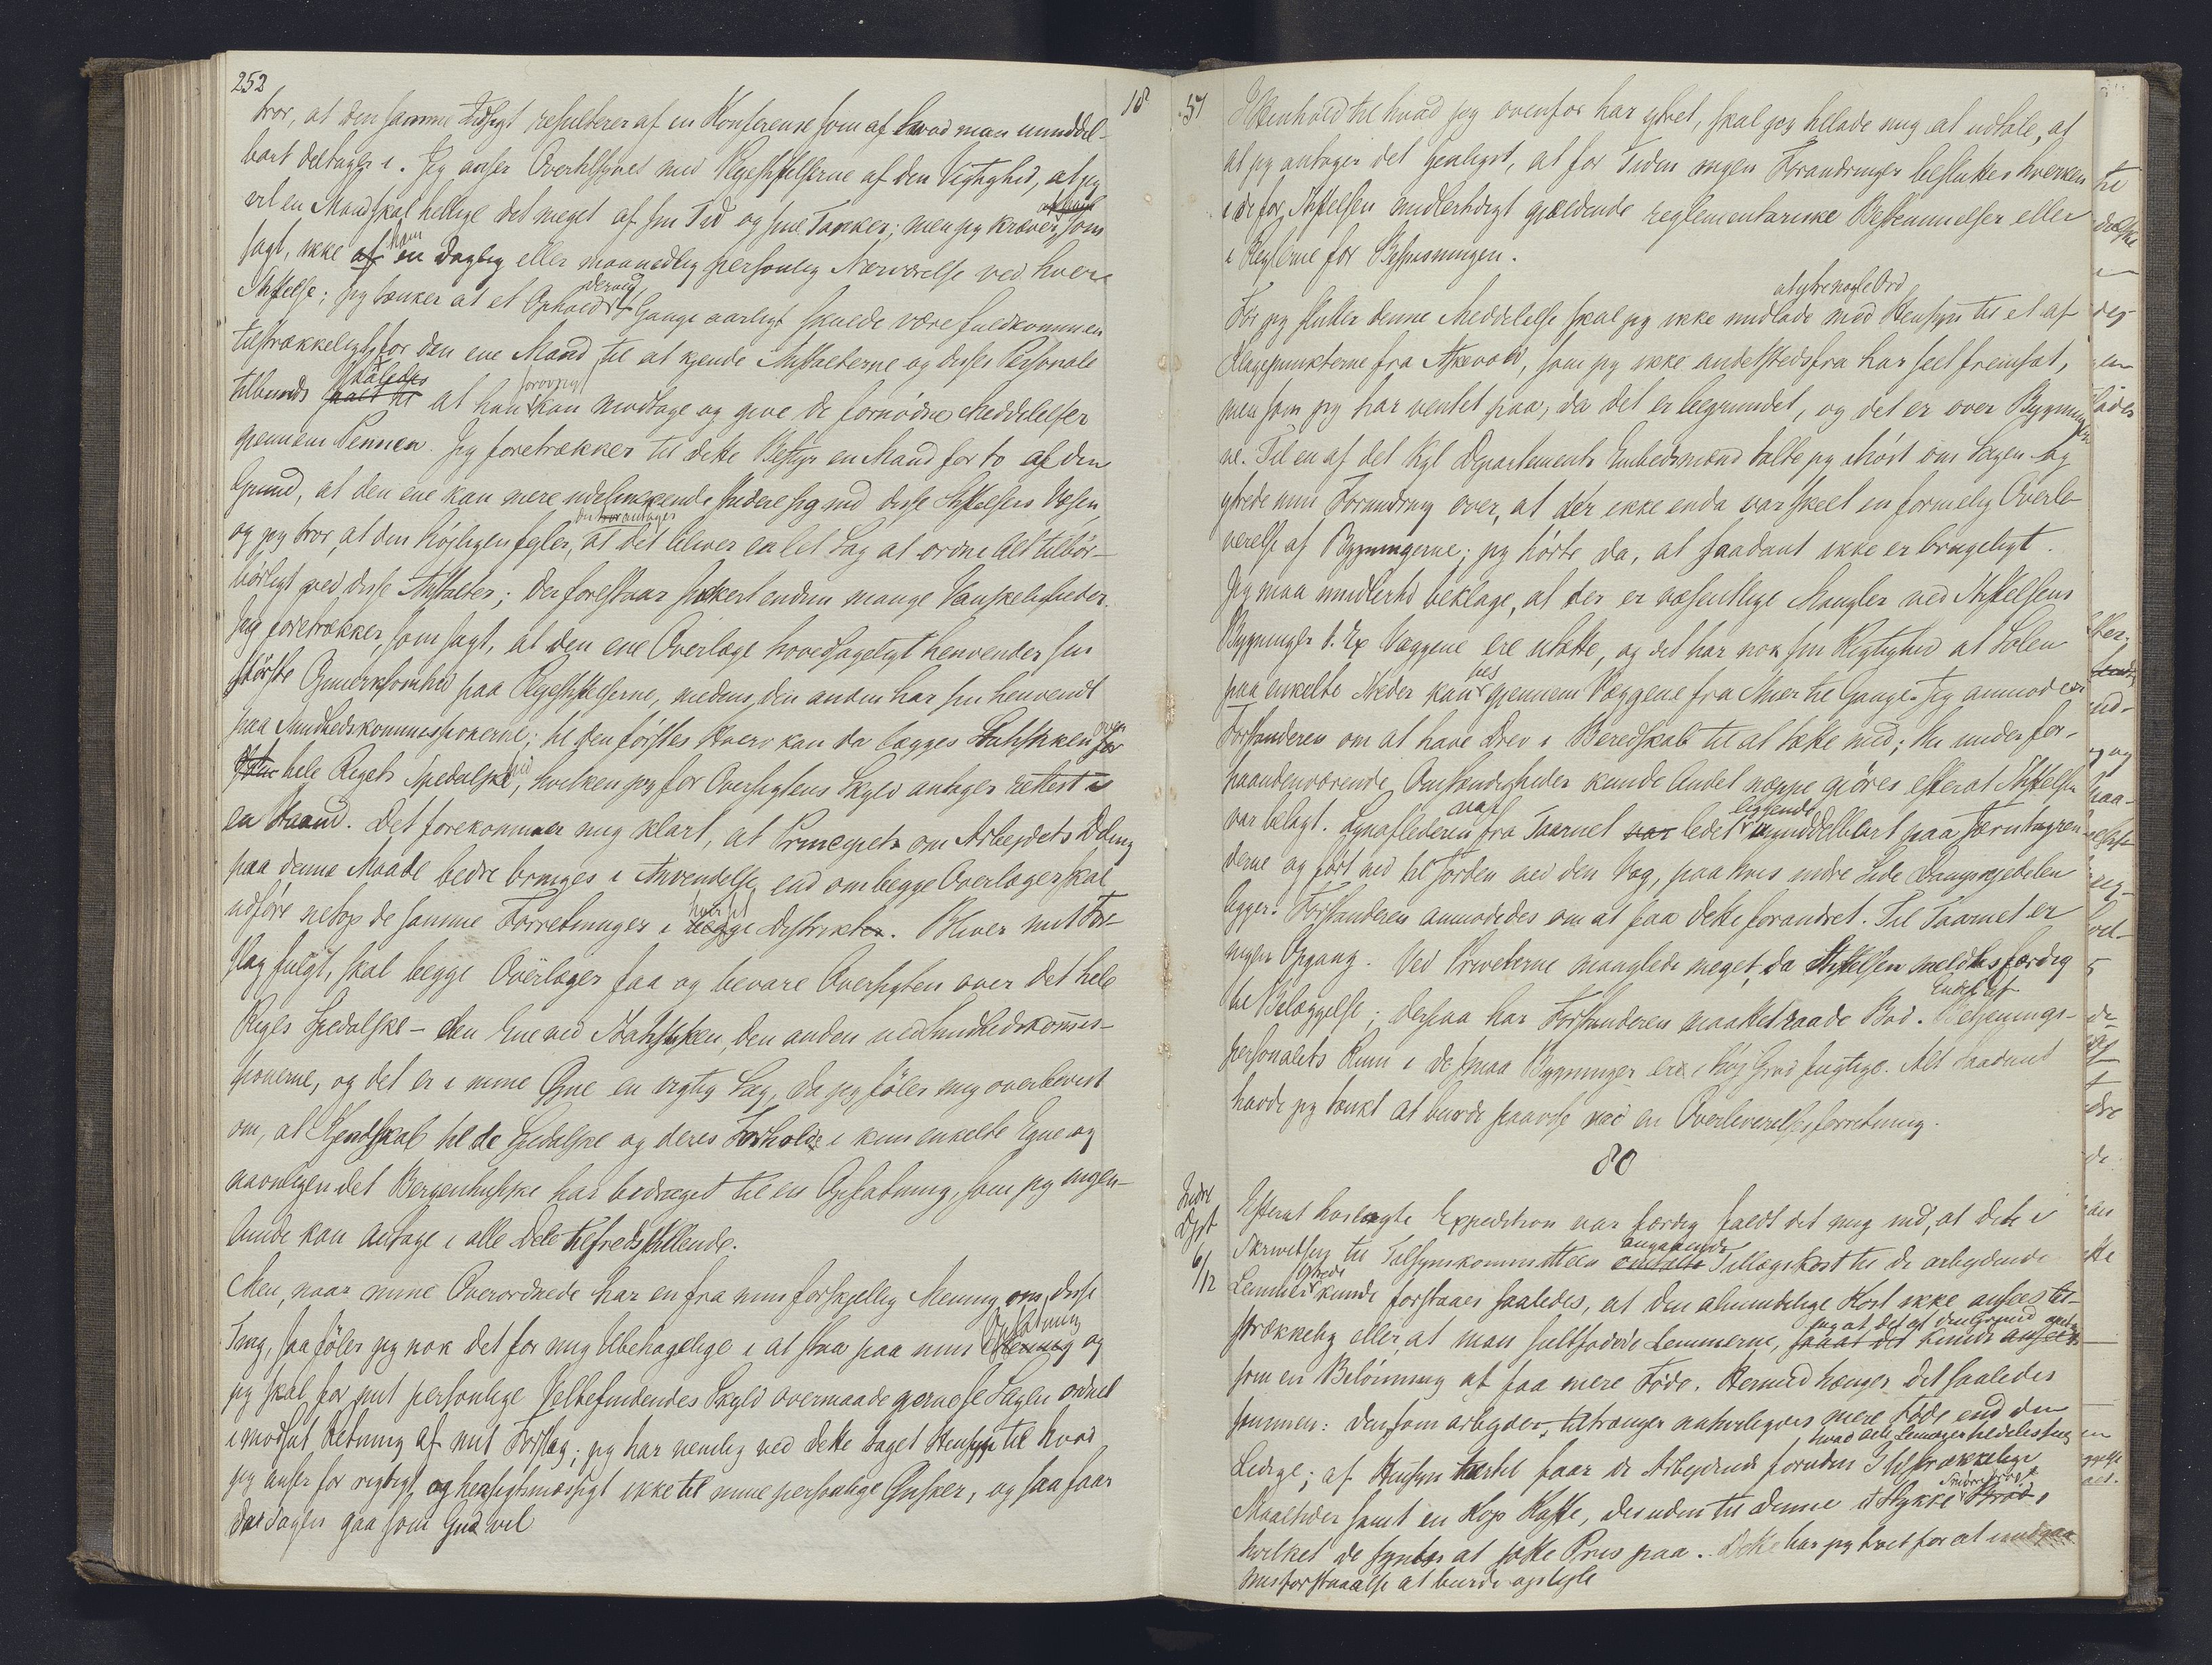 252
tror, at den samme Indsigt resulterer af en Konference som af hvad man umiddel-
bart deltager i. Jeg anser Overtilsynet med Plejestiftelserne af den Vigtighed, at jeg
vil en Mand skal hellige det meget af sin Tid og sine Tanker; men jeg kræver, som
sagt, ikke af ham en daglig eller maanedlig personlig Nærværelse ved hver
Stiftelse; jeg tænker at et Ophold derved 4 Gange aarligt skulde være fuldkommen
tilstrækkeligt for den ene Mand til at kjende Anstalterne og disses Personale
tilbunds saaledes at han forøvrig kan modtage og give de fornødne Meddelelser
gjennem Pennen. Jeg foretrækker til dette Bestyr en Mand for to af den
Grund, at den ene kan mere udelukkende studere sig ind disse Stiftelsers Væsen,
og jeg tror, at den høiligen fejler, der antager at det bliver en let Sag at ordne Alt tilbør-
børligt ved disse Anstalter; der forestaar sikkert endnu mange Vanskeligheder.
Jeg foretrækker, som sagt, at den ene Overlæge hovedsageligt henvender sin
største Opmærksomhed paa Plejestiftelserne, medens den anden har sin henvendt
paa Sundhedskommissionerne; til den førstes Hverv kan da lægges Statistiken over
hele Rigets Spedalskhed, hvilken jeg for Oversigtens Skyld antager rettest i
en Haand. Det forekommer mig klart, at Principet om Arbejdets Deling
paa denne Maade bedre bringes i Anvendelse, end om begge Overlæger skal
udføre netop de samme Forretninger i hver sit Distrikt. Bliver mit For-
slag fulgt, skal begge Overlæger faa og bevare Oversigten over det hele
Riges Spedalske – den Ene ved Statistiken, den anden ved Sundhedskommis-
sionerne, og det er i mine Øjne en vigtig Sag, da jeg føler mig overbevist
om, at Kjendskab til de Spedalske og deres Forholde i kun enkelte Egne og
navnligen det Bergenhusske har bedraget til en Opfatning, som jeg ingen-
lunde kan antage i alle Dele tilfredsstillende.
Men, naar mine Overordnede har en fra min forskjellig Mening om disse
Ting, saa føler jeg nok det for mig Ubehagelige i at staa paa min Opfatning og
jeg skal for mit personlige Velbefindendes Skyld overmaade gjerne se Sagen ordnet
i modsat Retning af mit Forslag; jeg har nemlig ved dette taget Hensyn til hvad
jeg anser for rigtigt og hensigtsmæssigt ikke til mine personlige Ønsker, og saa faar
da Sagen gaa som Gud vil
18
57
I Henhold til hvad jeg ovenfor har ytret, skal jeg tillade mig at udtale, at
at jeg antager det heldigst, at for Tiden ingen Forandringer besluttes hverken
i de for Stiftelsen midlertidigt gjældende reglementariske Bestemmelser eller
i Reglerne for Bespisningen.
at ytre nogle Ord
Før jeg slutter denne Meddelelse skal jeg ikke undlade med Hensyn til et af
Klagepunkterne fra Askevold, som jeg ikke andetstedsfra har seet fremsat,
men som jeg har ventet paa, da det er begrundet, og det er over Bygninger-
ne. Til en af det Kgl Departements Embedsmænd talte jeg ihøst om Sagen og
ytrede min Forundring over, at der ikke enda var skeet en formelig Overle-
verelse af Bygningerne; jeg hørte da, at saadant ikke er brugeligt.
Jeg maa imidlertid beklage, at der er væsentlige Mangler ved Stiftelsens
Bygninger t. Ex Væggene ere utætte, og det har nok sin Rigtighed at Solen
paa enkelte Steder kan sees gjennem Væggene fra Mur til Gange. Jeg anmoder
Forstanderen om at have Drev i Beredskab til at tætte med; thi under for-
haandenværende Omstændigheder kunde Andet næppe gjøres efterat Stiftelsen
var belagt. Lynaflederen fra Taarnet var ledet liggende umiddelbart paa Jerntagren-
derne og ført ned til Jorden ved den Væg, paa hvis indre Side Dampkjedelen
ligger. Forstanderen anmodedes om at faa dette forandret. Til Taarnet er
ingen Opgang. Ved Priveterne manglede meget, da Stiftelsen meldtes færdig
til Belæggelse; derpaa har Forstanderen maattet raade Bod. Endel af Betjenings-
personalets Rum i de smaa Bygninger ere i høj Grad fugtige. Alt saadant
havde jeg tænkt at burde paavises ved en Overleverelsesforretning.
80
Indre
Dpt
6/12
Efterat hoslagte Expedition var færdig faldt det mig ind, at dette i
Skrivelsen til Tilsynskommitteen angaaende Tillægskost til de arbejdende
Lemmer ytrede kunde forstaaes saaledes, at den almindelige Kost ikke ansees til-
strækkelig eller, at man sultefødede Lemmerne, saa at det af den Grund
som en Belønning at faa mere Føde. Hermed hænger det saaledes
sammen: den som arbejder, tiltrænger naturligvis mere Føde end den
Ledige; af Hensyn hertil faar de Arbejdende foruden 3 tilstrækkelige
Maaltider samt en Kop Kaffe, desuden til denne et Stykke Smørbrød,
hvilket de synes at sætte Pris paa. Dette har jeg troet for at undgaa
Misforstaaelse at burde oplyse